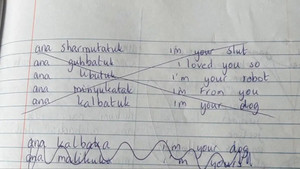 ana sharmutatuk i'm your slut
ana guhbatuk i loved you so
ana libutuk i'm your robot
ana minyukatak im from you
ana kalbatuk im your dog
ana kalbatka i'm your dog
ana i'm yours